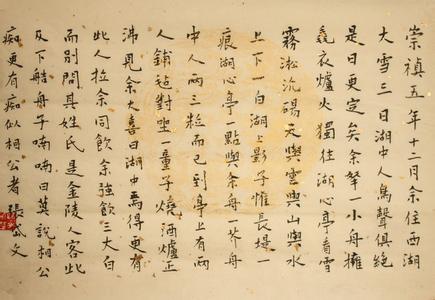 崇禎五年十二月余住西湖
大雪三日湖中人鳥聲俱絕
是日更定矣余拏一小舟擁
毳衣爐火獨往湖心亭看雪
霧淞沆碭天與雲與山與水
上下一白湖上影子惟長堤一
痕湖心亭一點與余舟一芥舟
中人兩三粒而已到亭上有兩
人鋪氈對坐一童子燒酒爐正
沸見余大喜曰湖中焉得更有
此人拉余同飲余強飲三大白
而別問其姓氏是金陵人客此
及下船舟子喃喃曰莫說相公
痴更有痴似相公者張岱文